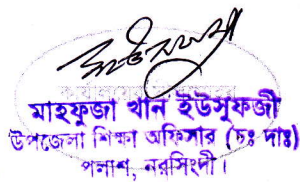 মাহফুজা খান ইউসুফজী
উপজেলা শিক্ষা অফিসার (চঃ দাঃ)
পলাশ, নরসিংদী।